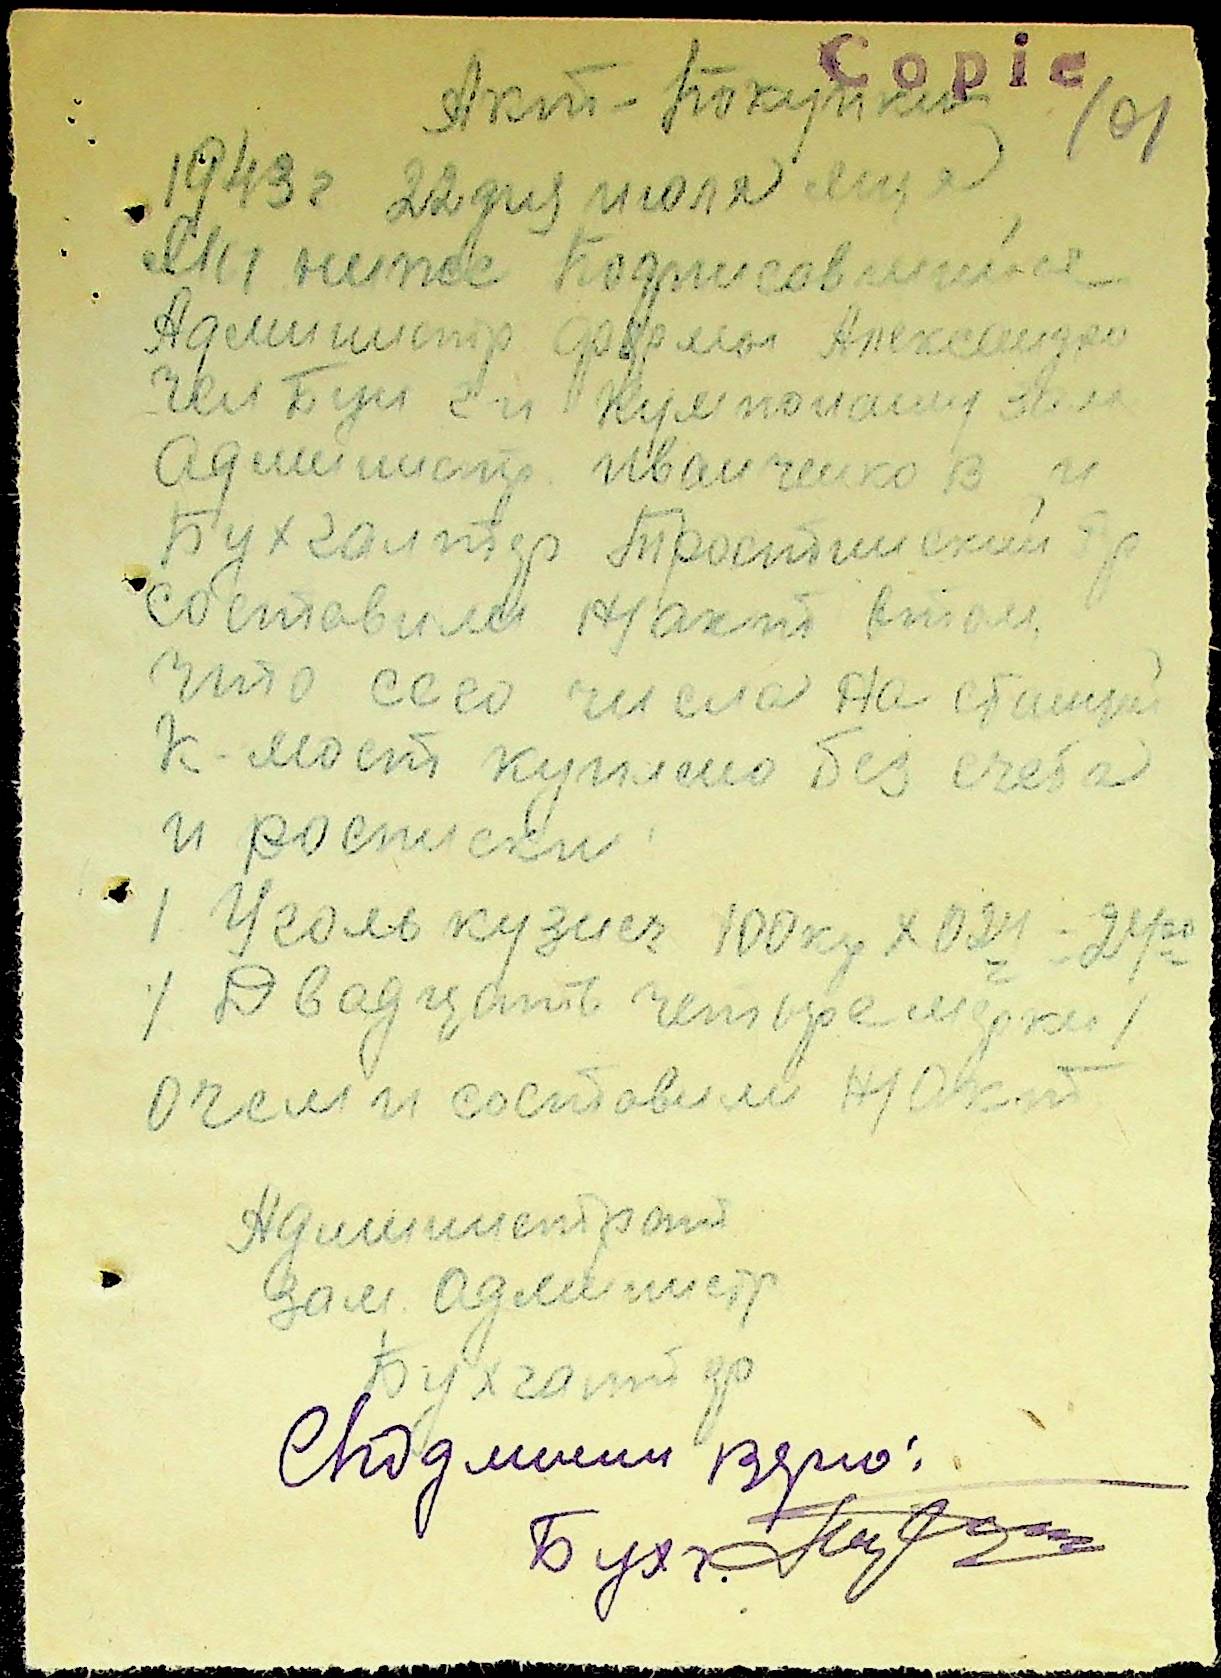 Copie
Акт-Покупки 101
1943 г 22 дня июля м-ца
Мы ниже Подписавшийся
Администр фермы Александро
Чел Бун г-н Кумпонашу зам
Администр. Иванченко В и
Бухгалтер Тростинский
составили Н/акт втом,
что сего числа На станции
К-мост куплено Без счета
и росписки
1 Уголь кузнеч 100 кг х 0 24 = 24 00
/ Двадцать четыре марки /
Очем и составили Н/Акт
Администрат
Зам. Администр
Бухгалтер
С подлинным верно:
Бухг.